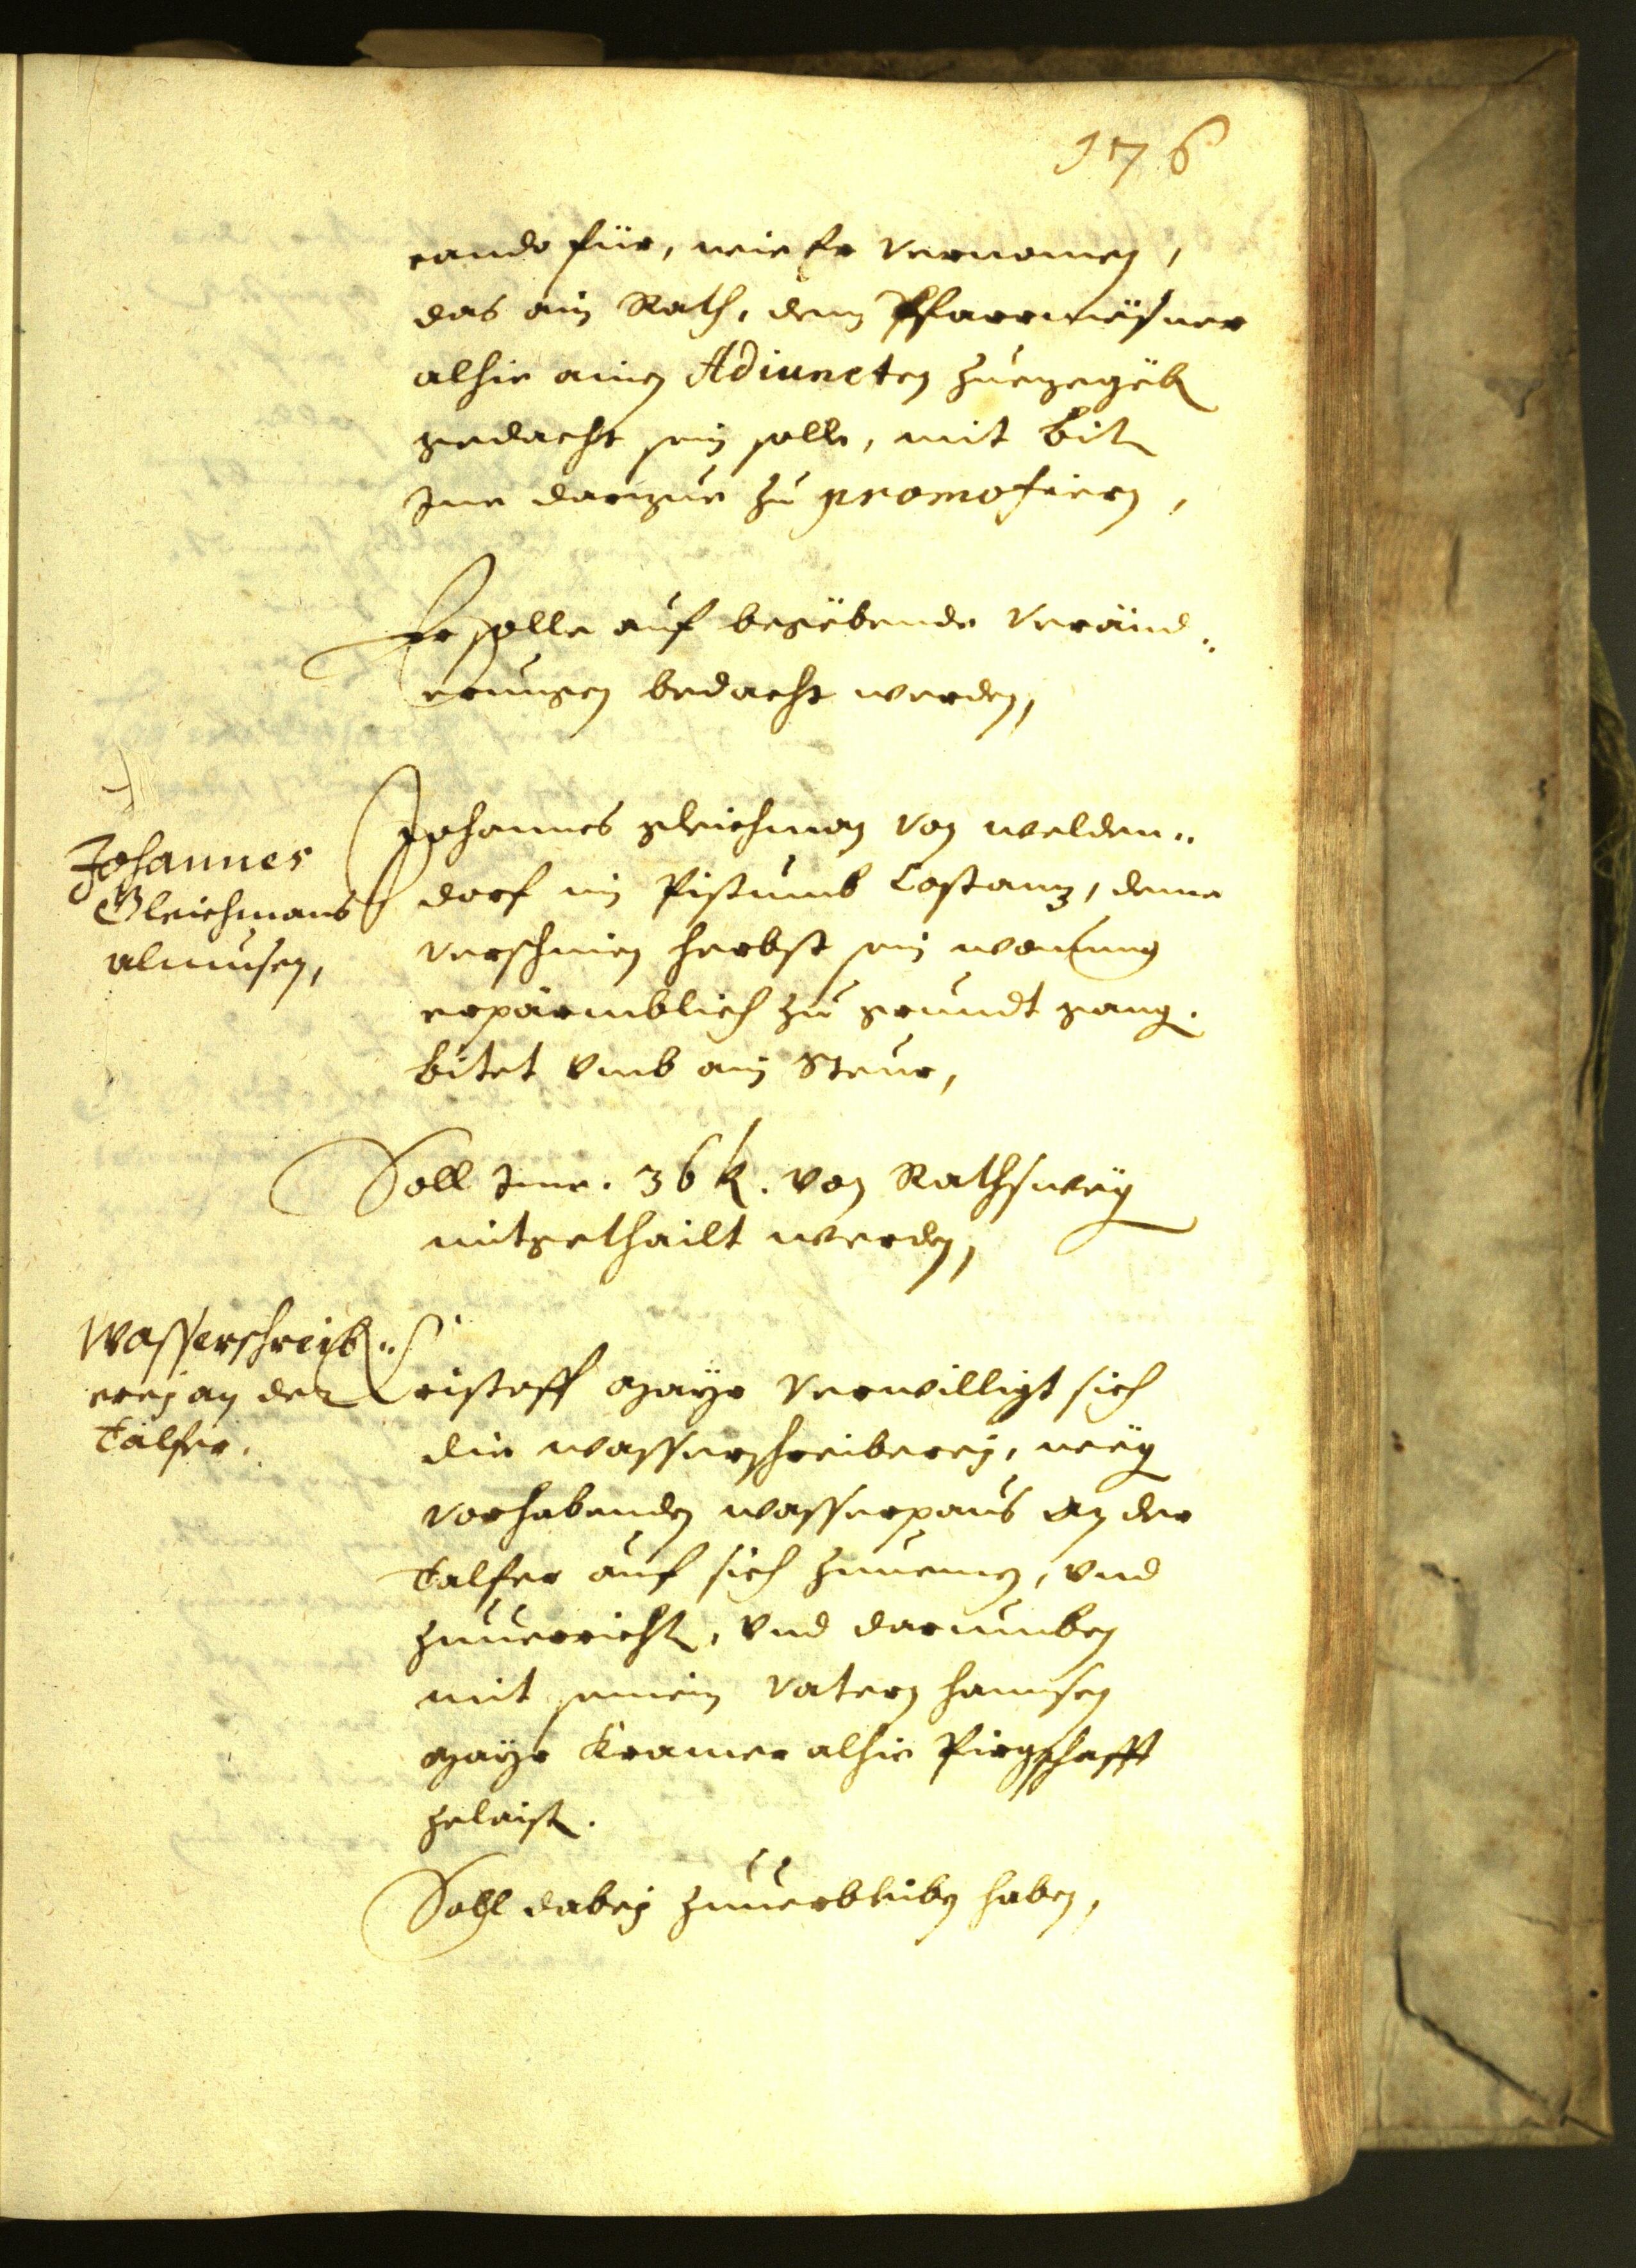 176
rando für, wie Er vernomen,
das ain Rath, dem Pfarrmësner
alhie ainen Adiuncten zuezegëben
gedacht sein solle, mit bit
Ine darzue zu promofiern,
Er solle auf begëbende Veränd„
erungen bedacht werden,
Johannes
Gleichmans
almusen,
Johannes gleichman von welden„
dorf im Pistumb Costanz, deme
verschinen herbst sein wonung
erpärmblich zu grundt gang.
bitet vmb ain Steur,
Soll Ime . 36 k. von Rathswëgen
mitgethailt werden,
Wasserschreib„
erej an der
Talfer.
Cristoff mayr verwilligt sich
die wasserschreiberej, wëgen
vorhabenden wasserpaus an der
Talfer auf sich zunemen, vnd
zuuerrichten, vnd darumben
mit seinem Vatern hannsen
mayr Kramer alhie Pirgschafft
zelaisten.
Soll dabej zuuerbliben haben,